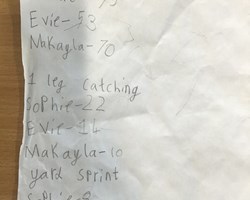 Evie-53
Makayla-70
1 leg catching
Sophie-22
Evie-14
Makayla-10
yard sprint